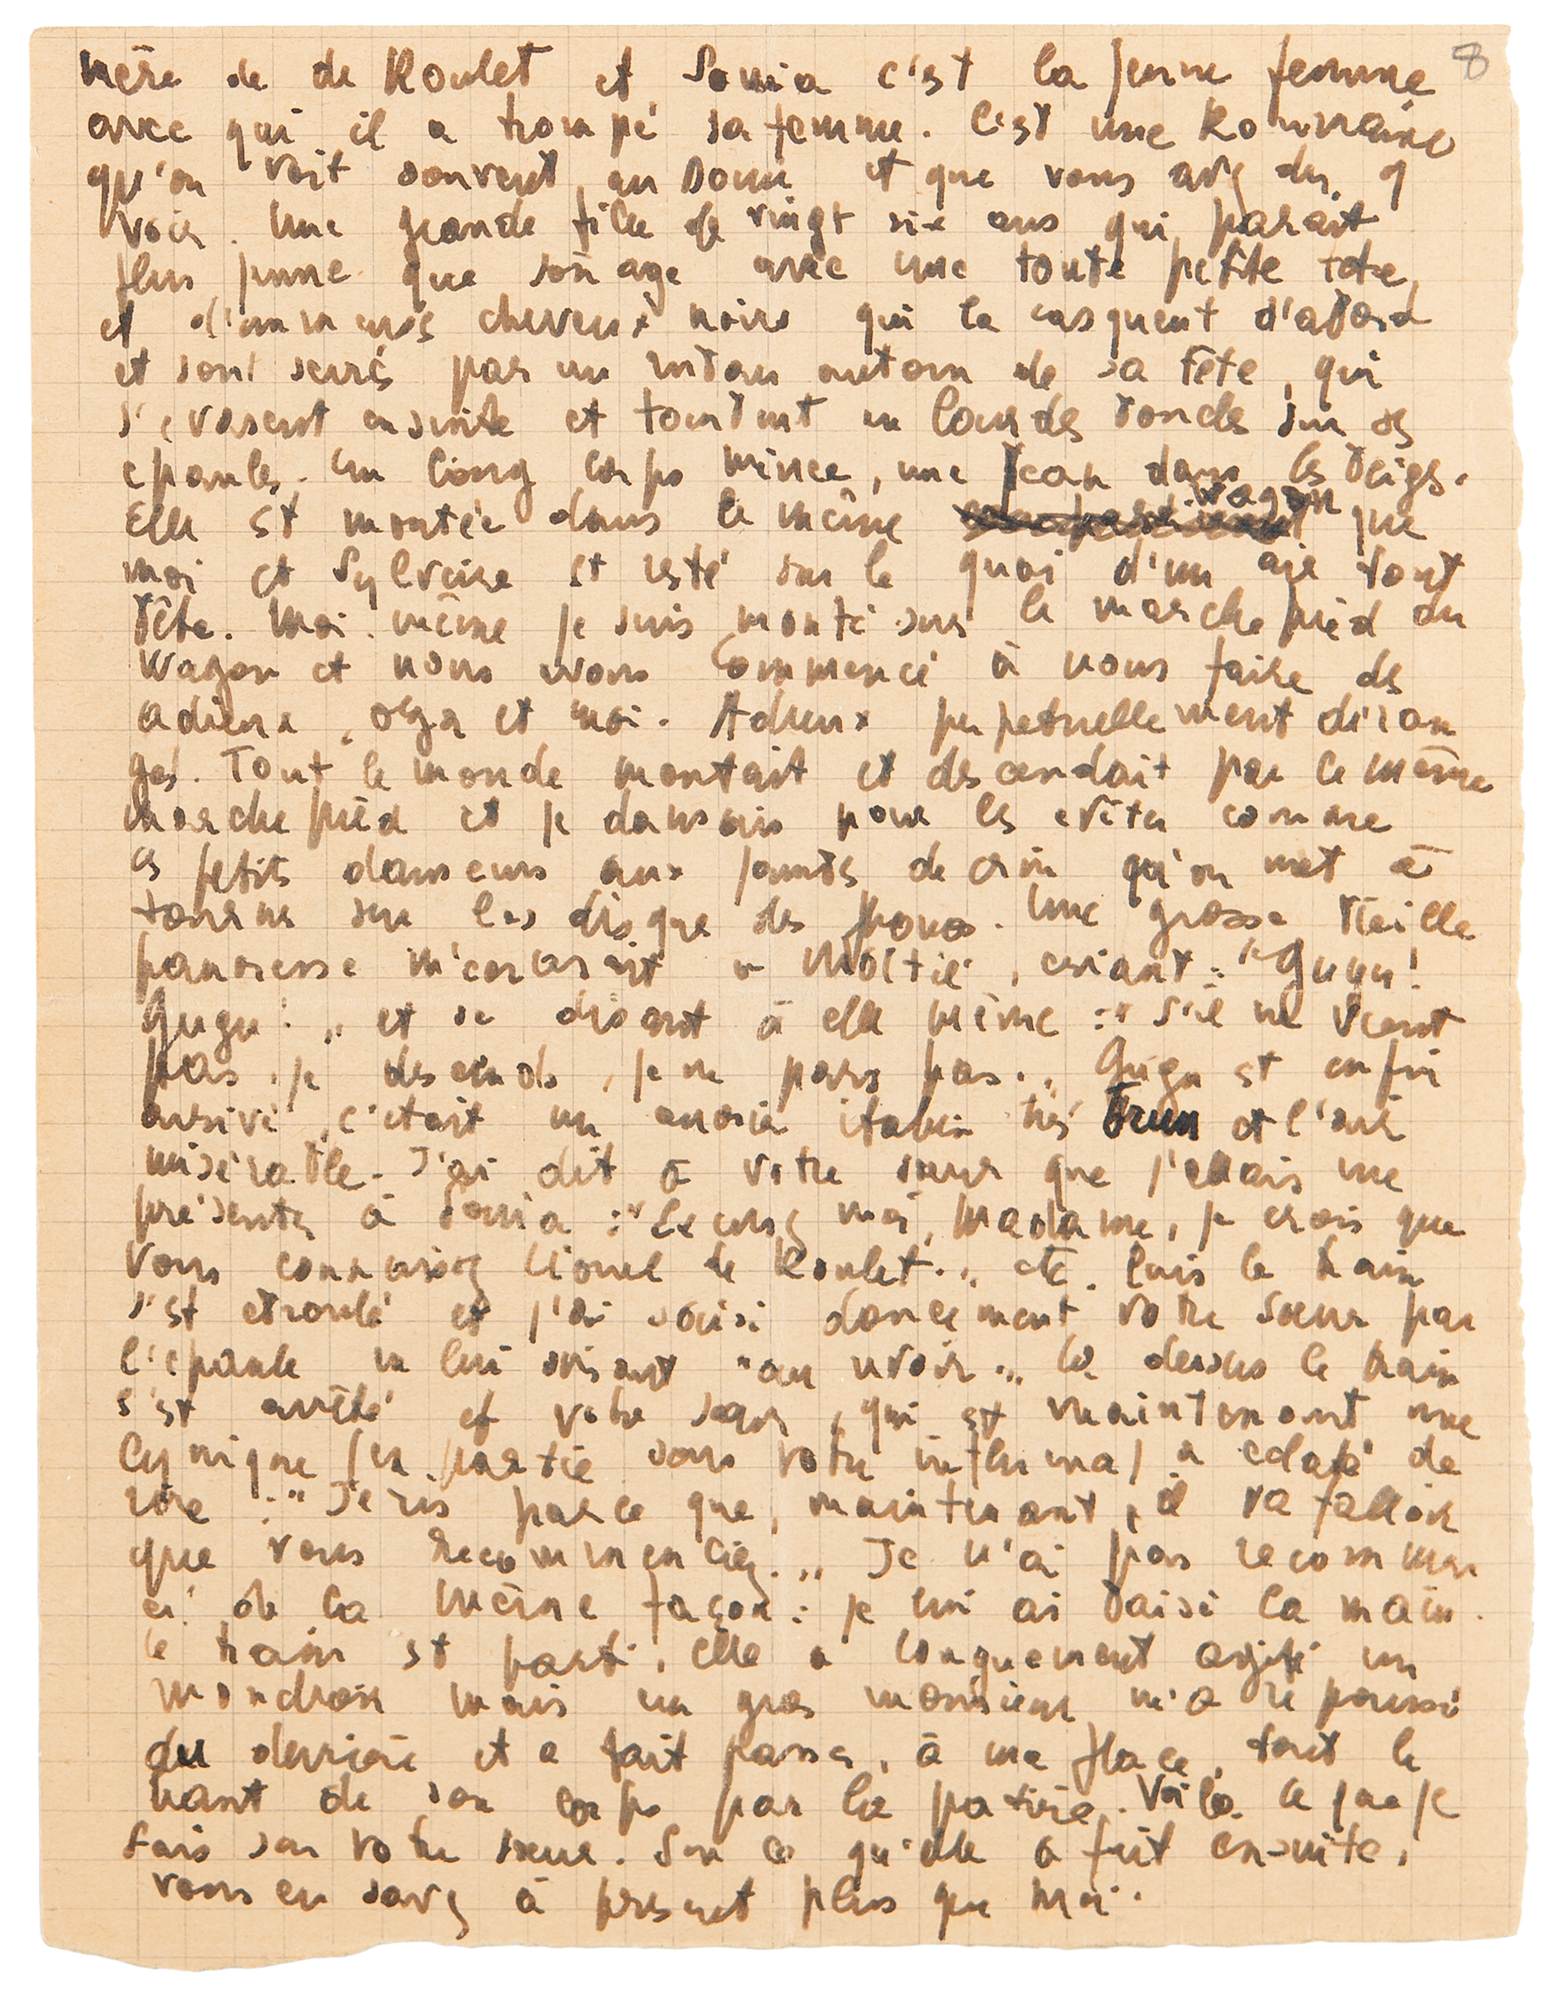 8
mère de de Roulet et Sonia c'est la jeune femme
avec qui il a trompé sa femme. C'est une Roumaine
qu'on voit souvent, au Dome et que vous avez du y
voir. Une grande fille de vingt six ans qui parait
plus jeune que son age avec une toute petite tete,
et d'immenses cheveux noirs qui la casquent d'abord
et sont serrés par un ruban autour de sa tête, qui
s'evasent ensuite et tombent en lourdes boucles sur ses
epaules. Un long corps mince, une jean dans les beiges.
Elle est montée dans le même wagon que
moi et Sylvère est resté sur le quai d'un air tout
bête. Moi même je suis monté sur le marchepied du
wagon et nous avons commencé à nous faire des
adieux, Olga et moi. Adieux perpetuellement déran
gés. Tout le monde montait et descendait par le même
marchepied et je dansais pour les eviter comme
ces petits danseurs aux jambes de crin qu'on met à
tourner sur les disque des phonos. Une grosse vieille
pauvresse m'ecrasait à moitié, criant : "Gugu !
Gugu ! " et se disant à elle même : " S'il ne vient
pas, je descends, je ne pars pas. " Gugu est enfin
arrivé, c'était un ouvrier italien très brun et l'air
misérable. J'ai dit à votre soeur que j'allais me
présenter à Sonia : " Excusez moi, Madame, je crois que
vous connaissez Lionel de Roulet. " etc. Puis le train
s'est ebranlé et j'ai saisi doucement votre soeur par
l'epaule en lui disant " au revoir ". Là dessus le train
s'est arrêté et votre soeur, qui est maintenant une
cynique (en partie sous votre influence) a eclaté de
rire : " Je ris parce que, maintenant, il va falloir
que vous recommenciez. " Je n'ai pas recommen
cé de la même façon : je lui ai baisé la main.
Le train est parti, elle a longuement agité un
mouchoir mais un gros monsieur m'a repoussé
du derrière et a fait passer, à ma place, tout le
haut de son corps par la portière. Voilà ce que je
sais sur votre soeur. Sur ce qu'elle a fait ensuite,
vous en savez à present plus que moi.